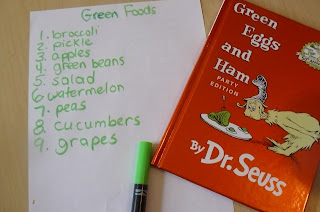 Green Foods
1. broccoli
2. pickle
3. apples
4. green beans
5. salad
6 watermelon
7. peas
8. cucumbers
9. grapes
Green
Eggs
and
Ham
PARTY
EDITION
By Dr. Seuss